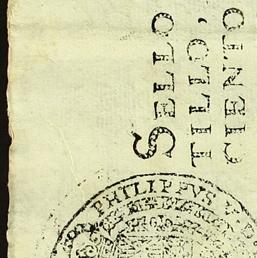 SELLO
TILLO,
CIENTO
PHILIPPVS V D